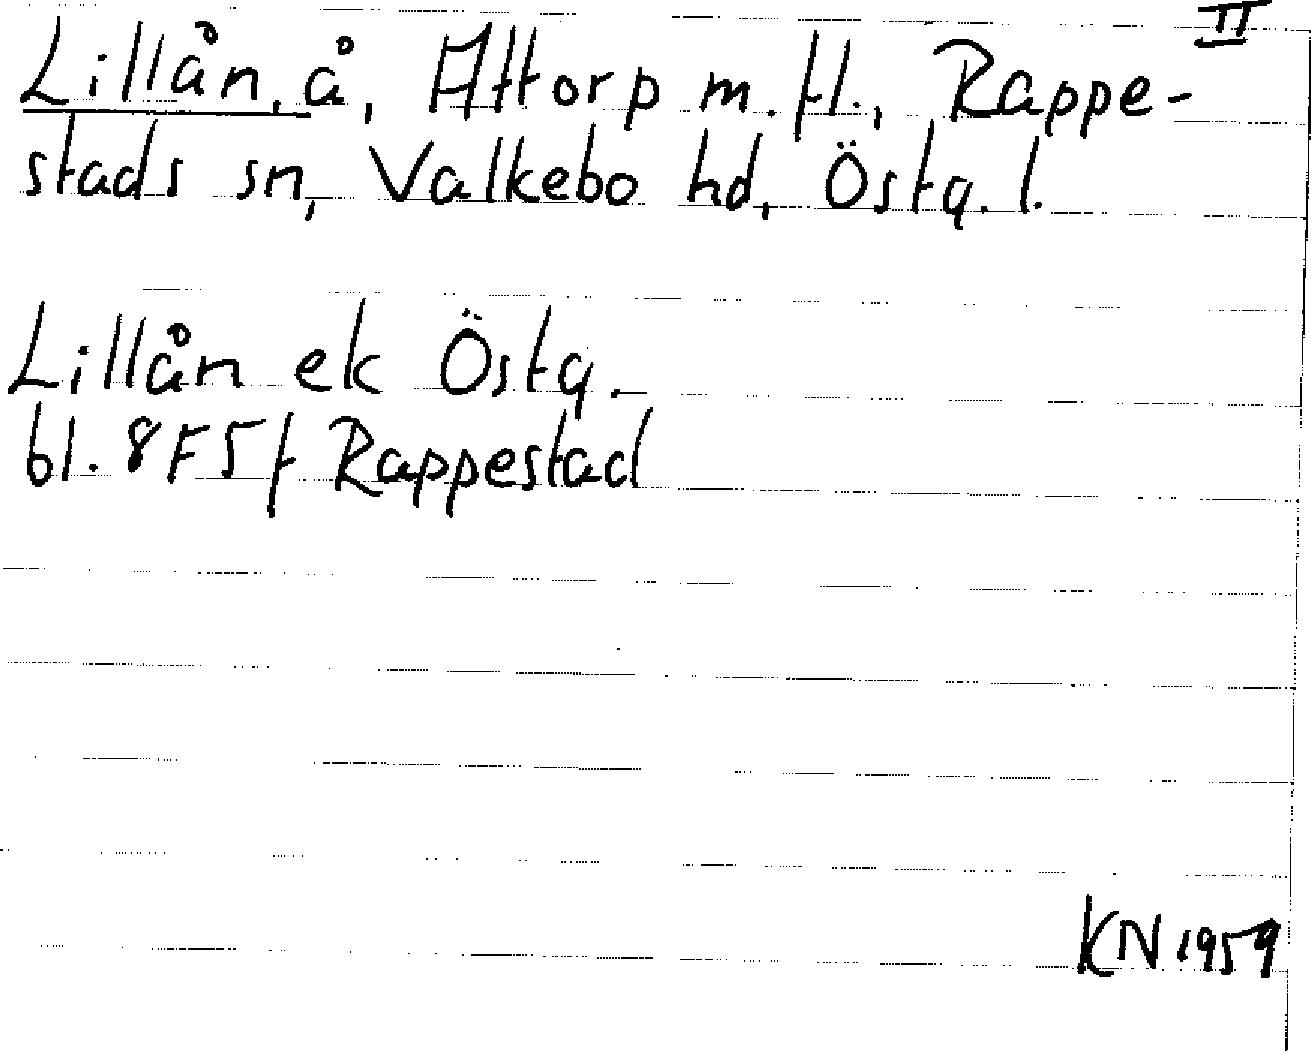 II
Lillån, å, Attorp m. fl., Rappe-
stads sn, Valkebo hd, Östg. l.
Lillån ek Östg.
bl. 8F5f Rappestad
KN 1959